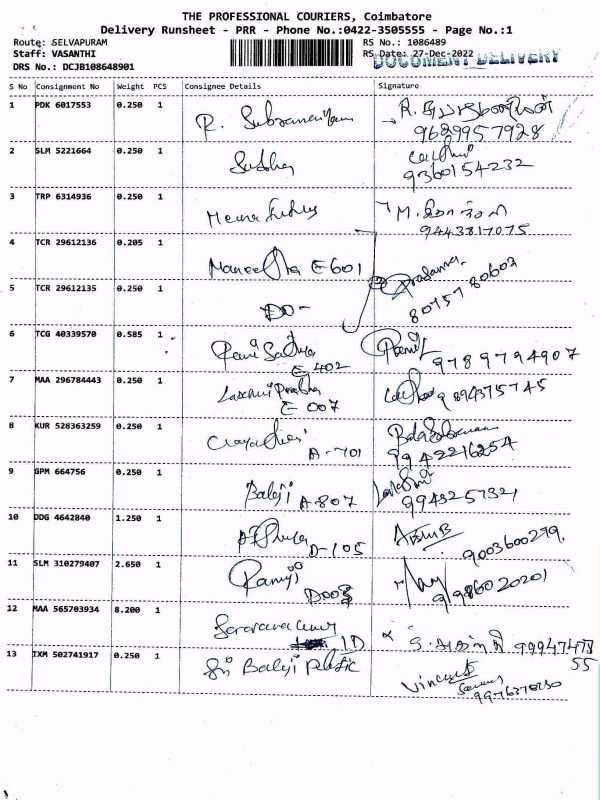 THE PROFESSIONAL COURIERS, Coimbatore
Delivery Runsheet - PRR - Phone No.:0422-3505555 - Page No.:1
Route: SELVAPURAM
RS No.: 1086489
Staff: VASANTHI
RS Date: 27-Dec-2022
DOCUMENT DELIVERY
DRS No.: DCJB108648901
S No Consignment No Weight PCS Consignee Details Signature
1 PDK 6017553 0.250 1 R. Subramaniyam
9639957928
2 SLM 5221664 0.250 1 Sudha
9360154232
3 TRP 6314936 0.250 1
9443817075
4 TCR 29612136 0.205 1 E 601
5 TCR 29612135 0.250 1 DO-
8075780602
6 TCG 40339570 0.585 1
E 402 9789794907
7 MAA 296784443 0.250 1 Laxmi Prabha
E 007 9894375745
8 KUR 528363259 0.250 1 BalaSubramani
A-701 9942216254
9 GPM 664756 0.250 1 Balaji A-807 Lakshmi
9943257321
10 DDG 4642840 1.250 1
D-105 9003600299
11 SLM 310279407 2.650 1 Ramji
D003 91986020201
12 MAA 565703934 8.200 1
1D 9994747355
13 IXM 502741917 0.250 1 Sri Balaji Plastic
Vincent
9976370250